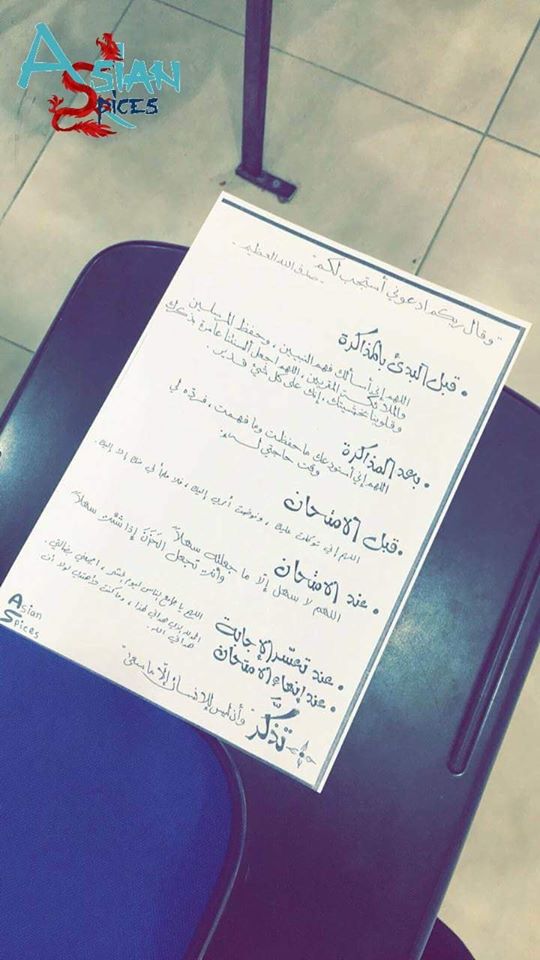 ASIAN
SPICES
"وقال ربكم ادعوني أستجب لكم"
صدق الله العظيم
• قبل البدئ بالمذاكرة
اللهم إني أسألك فهم النبيين، وحفظ المرسلين
والملائكة المقربين، اللهم اجعل ألسنتنا عامرة بذكرك
وقلوبنا بخشيتك، إنك على كل شيء قدير.
• بعد المذاكرة
اللهم إني أستودعك ما حفظت وما فهمت، فرده لي
وقت حاجتي له
• قبل الامتحان
اللهم إني توكلت عليك، وفوضت أمري إليك،
• عند الامتحان
اللهم لا سهل إلا ما جعلته سهلاً
وأنت تجعل الحَزَنَ إذا شئت سهلاً
• عند تعسّر الإجابة
اللهم يا جامع الناس ليوم
• عند إنهاء الامتحان
الحمد لله الذي هداني لهذا، وما كنت لولا أن
هداني الله.
! تذكَّر "وأن ليس للإنسان إلا ما سعى"
Asian
Spices